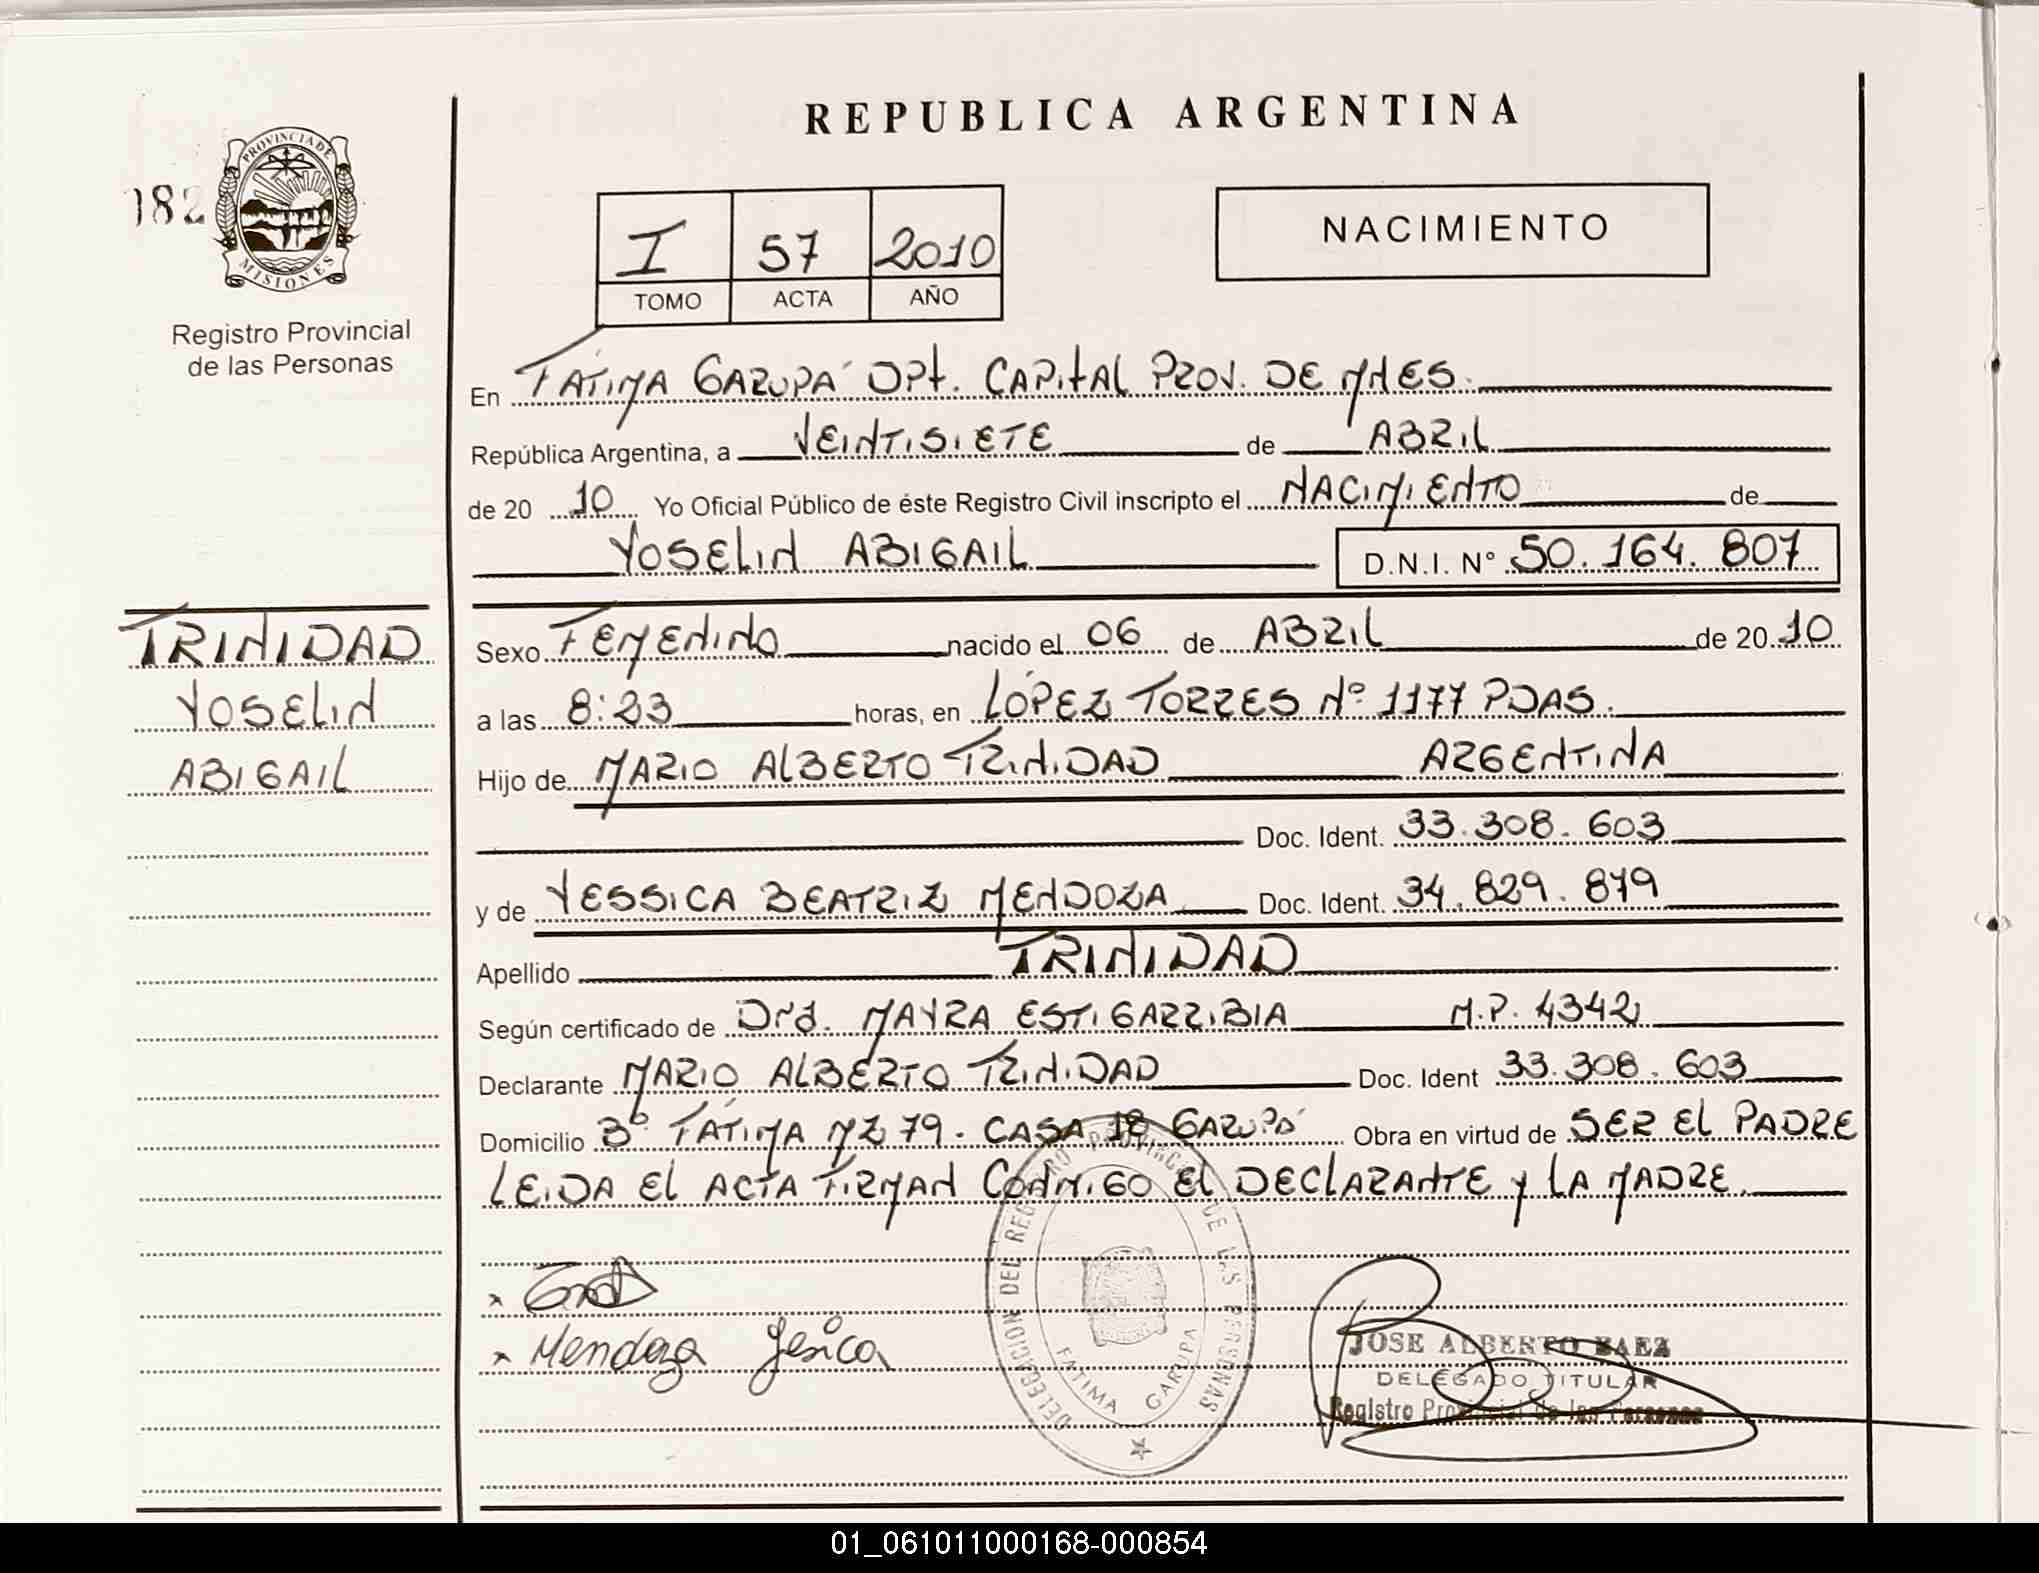 REPUBLICA ARGENTINA
182
PROVINCIA DE
MISIONES
Registro Provincial
de las Personas
I 57 2010
TOMO ACTA AÑO
NACIMIENTO
En FÁTIMA GARUPÁ DPt. CAPITAL PROV. DE MNES.
República Argentina, a VEINTISIETE de ABRIL
de 20 10 Yo Oficial Público de éste Registro Civil inscripto el NACIMIENTO de
YOSELIN ABIGAIL D.N.I. Nº 50.164.807
TRINIDAD
YOSELIN
ABIGAIL
Sexo FEMENINO nacido el 06 de ABRIL de 20 10
a las 8:23 horas, en LÓPEZ TORRES Nº 1177 PDAS.
Hijo de MARIO ALBERTO TRINIDAD ARGENTINA
Doc. Ident. 33.308.603
y de YESSICA BEATRIZ MENDOZA Doc. Ident. 34.829.879
Apellido TRINIDAD
Según certificado de Dra. MAYRA ESTIGARRIBIA M.P. 4342
Declarante MARIO ALBERTO TRINIDAD Doc. Ident 33.308.603
Domicilio Bº FÁTIMA MZ 79. CASA 18 GARUPÁ Obra en virtud de SER EL PADRE
LEIDA EL ACTA FIRMAN CONMIGO EL DECLARANTE y LA MADRE.
Mendoza Jesica
DELEGACION DEL REGISTRO PROVINCIAL DE LAS PERSONAS
FATIMA GARUPA
JOSE ALBERTO BAEZ
DELEGADO TITULAR
Registro Provincial de las Personas
01_061011000168-000854